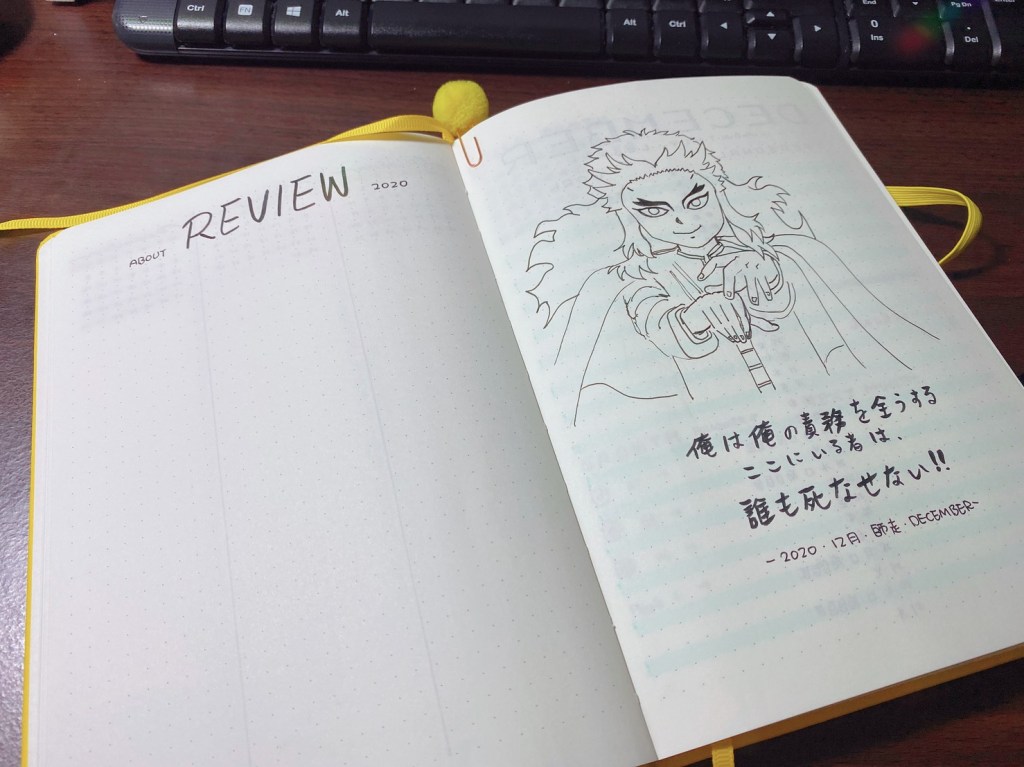 Ctrl FN Alt Alt Ctrl 0 Ins Pg Dn Del
ABOUT REVIEW 2020
DECEMBER
俺は俺の責務を全うする
ここにいる者は、
誰も死なせない!!
- 2020・12月・師走・DECEMBER-